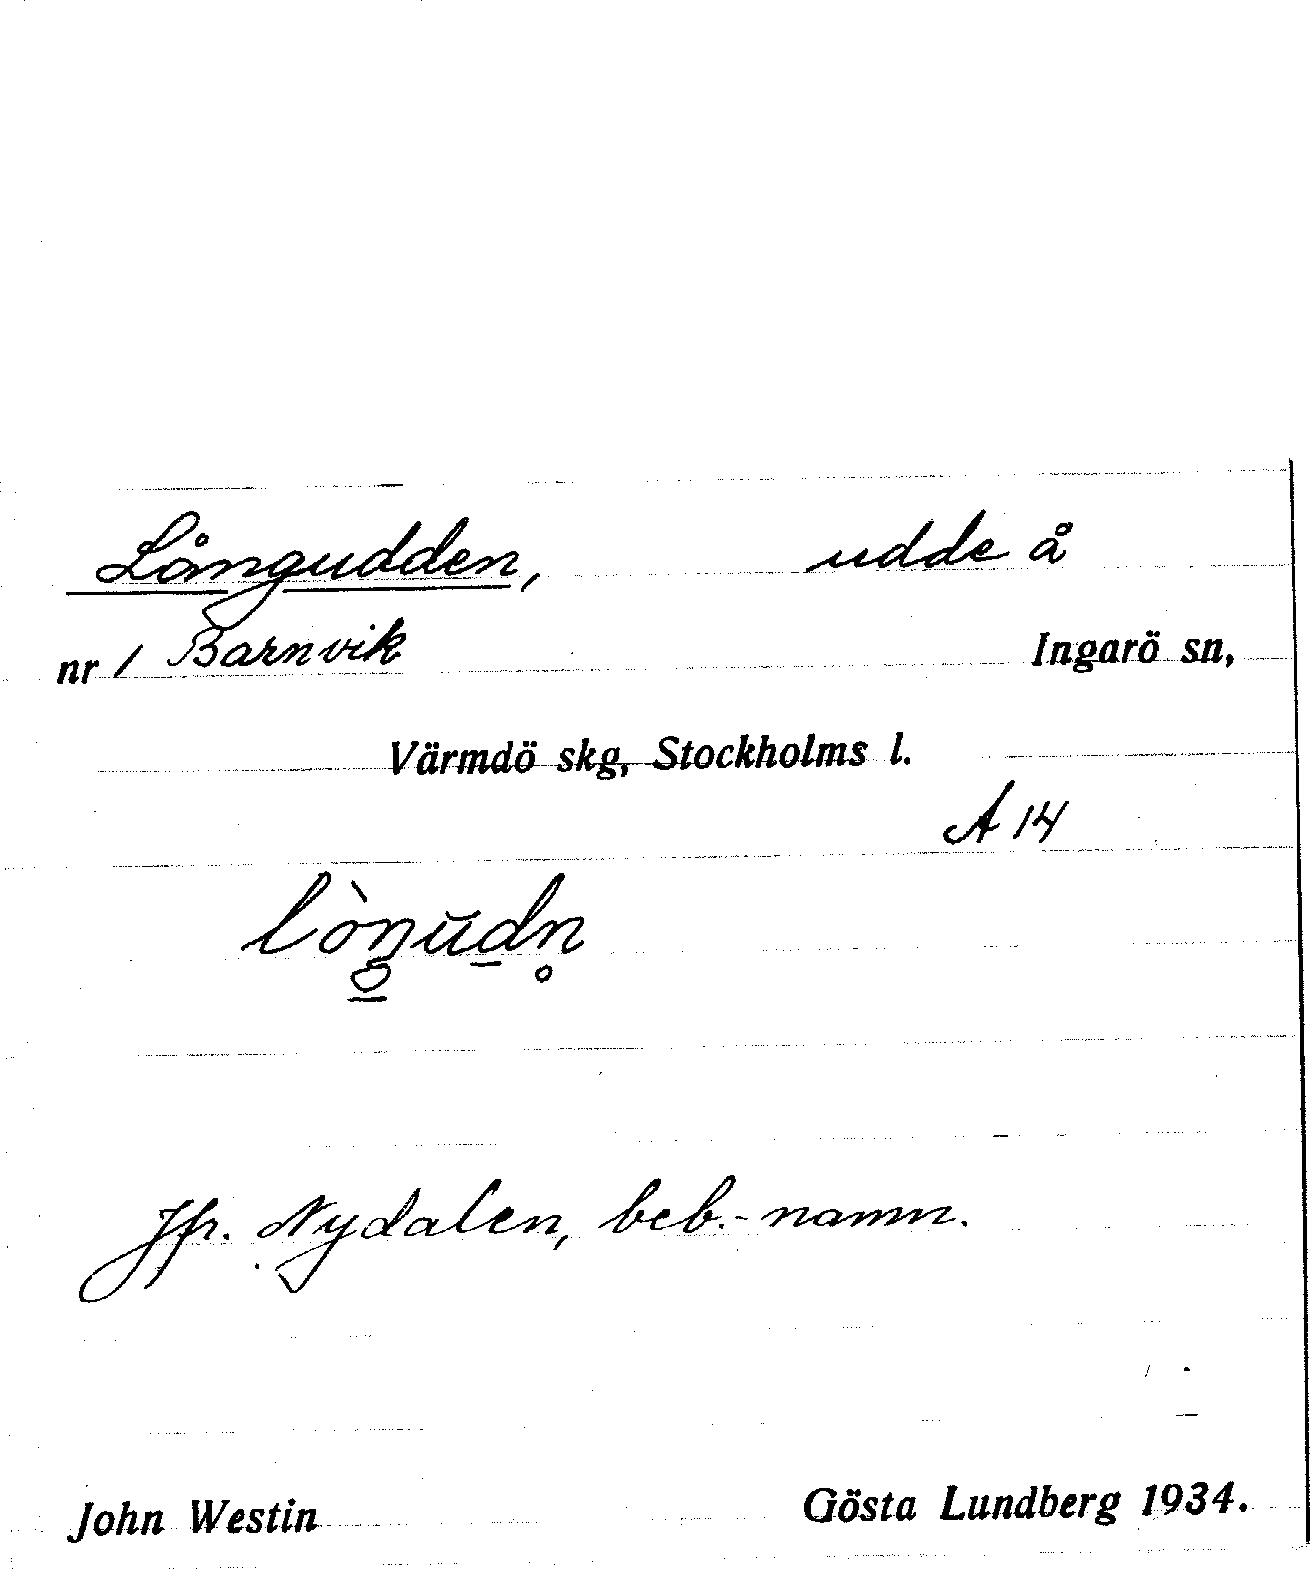 Långudden, udde å
nr 1 Barnvik Ingarö sn,
Värmdö skg, Stockholms l.
A 14
Jfr. Nydalen, beb.-namn.
John Westin Gösta Lundberg 1934.